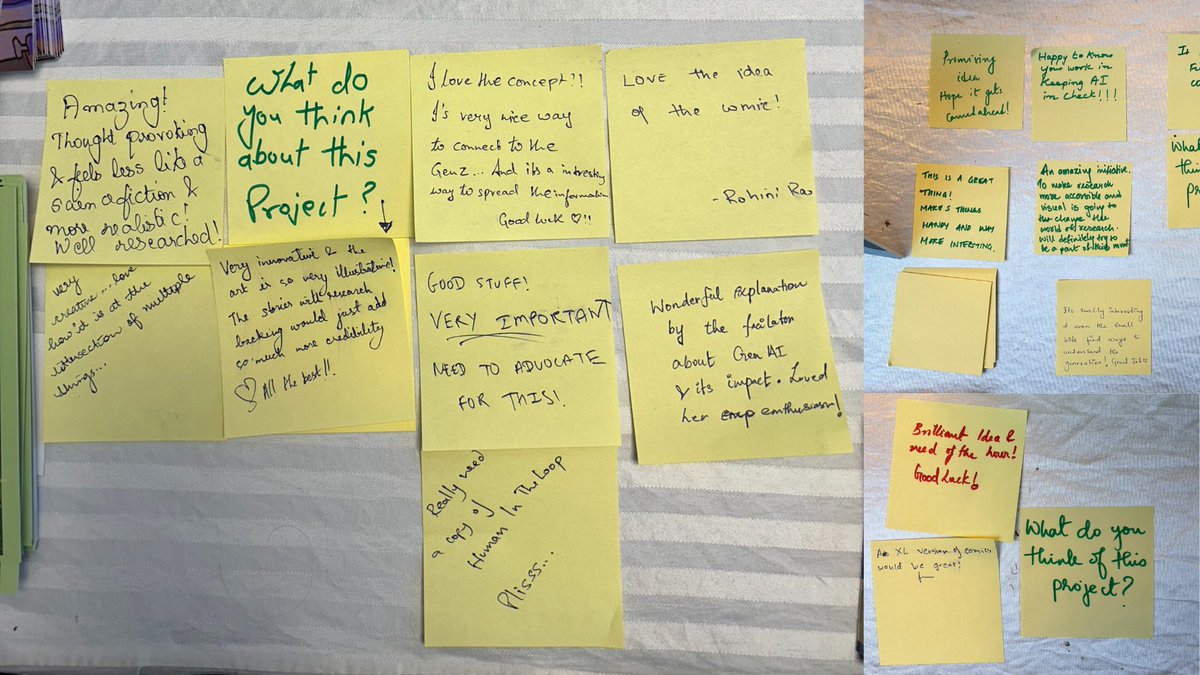 Amazing!
Thought provoking
& feels less like a
fiction &
more realistic!
Well researched!
What do
you think
about this
Project?
I love the concept!!
It's very nice way
to connect to the
Genz... And its a
way to spread the information
Good luck ♡!!
LOVE the idea
of the comic!
- Rohini Rao
very
creative... love
how it is at the
intersection of multiple
things...
Very innovative & the
art is so very illustrative!
The stories with research
backing would just add
so much more credibility
♡ All the best!!
GOOD STUFF!
VERY IMPORTANT
NEED TO ADVOCATE
FOR THIS!
Wonderful explanation
by the
about Gen AI
& its impact. Loved
her enthusiasm!
Really need
a copy of
Human In The Loop
Plisss...
Promising
idea
Hope it gets
ahead!
Happy to know
your work in
keeping AI
in check!!!
THIS IS A GREAT
THING!
MAKES THINGS
HANDY AND WAY
MORE INTERESTING.
An amazing initiative.
To make research
more accessible and
visual is going to
change the
world of research.
Will definitely try to
be a part of this
Its really interesting
find ways to
understand the
generation! Good Job!!
Brilliant Idea &
need of the hour!
Good Luck!
An XL version of comics
would be great!
What do you
think of this
project?